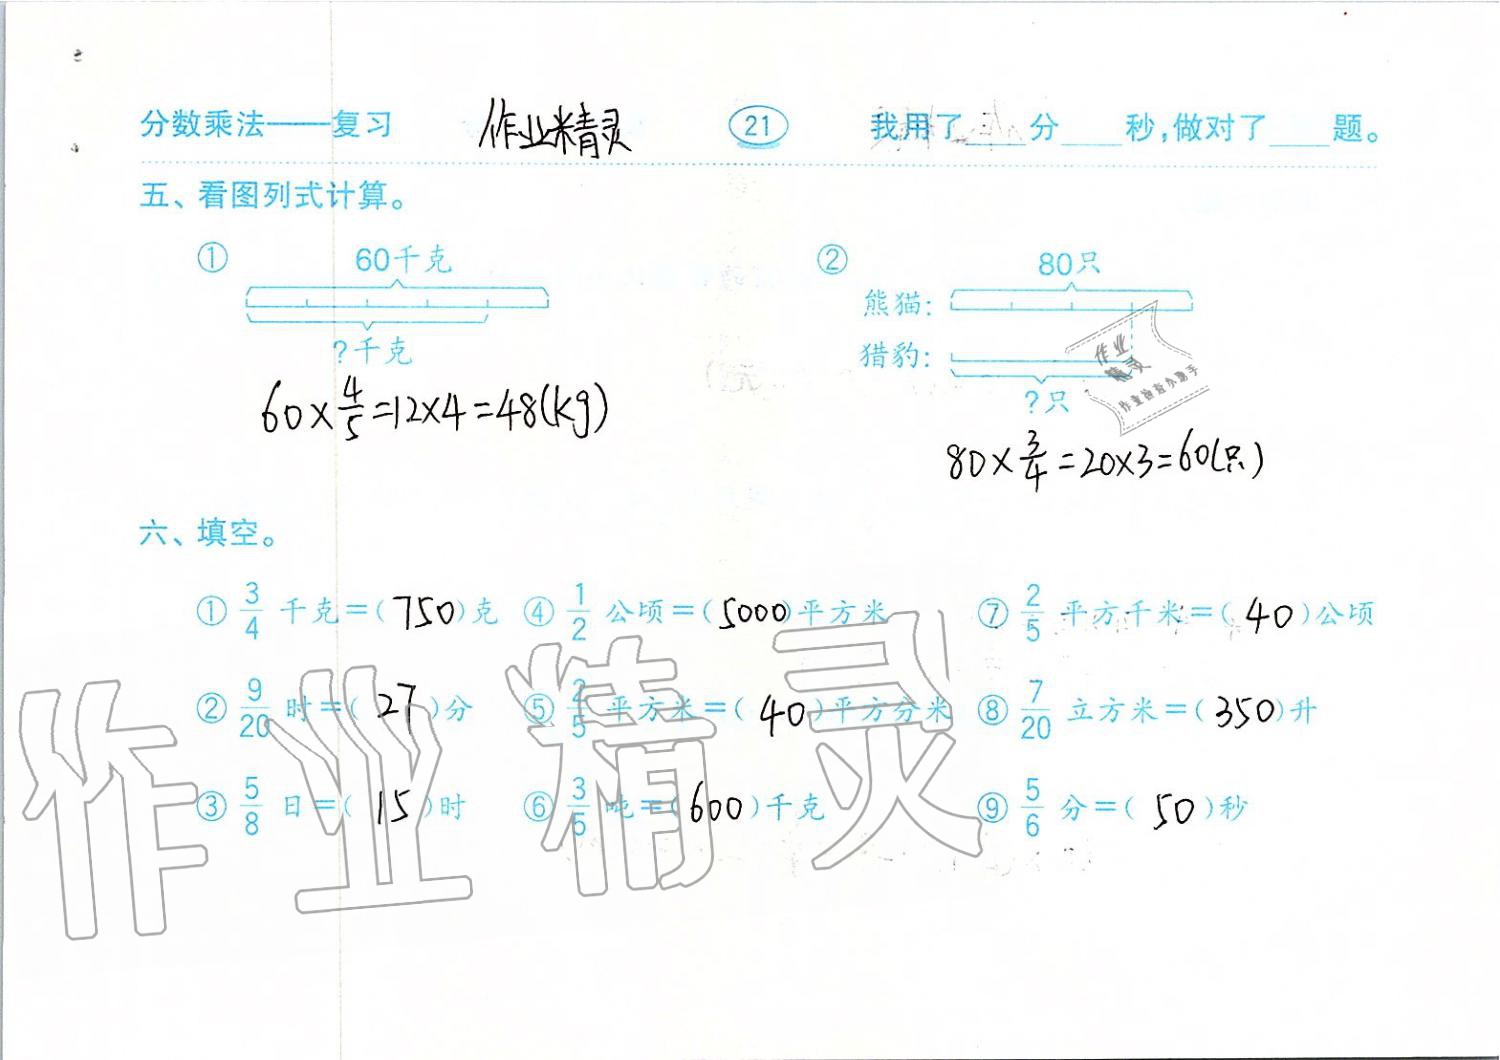 分数乘法——复习 作业精灵 21 我用了____分____秒,做对了____题。
五、看图列式计算。
① 60千克 ② 80只
熊猫:
?千克 猎豹:
?只
作业精灵
作业检查小助手
60×4/5=12×4=48(kg)
80×3/4=20×3=60(只)
六、填空。
① 3/4 千克=(750)克 ④ 1/2 公顷=(5000)平方米 ⑦ 2/5 平方千米=(40)公顷
② 9/20 时=(27)分 ⑤ 2/5 平方米=(40)平方分米 ⑧ 7/20 立方米=(350)升
③ 5/8 日=(15)时 ⑥ 3/5 吨=(600)千克 ⑨ 5/6 分=(50)秒
作业精灵